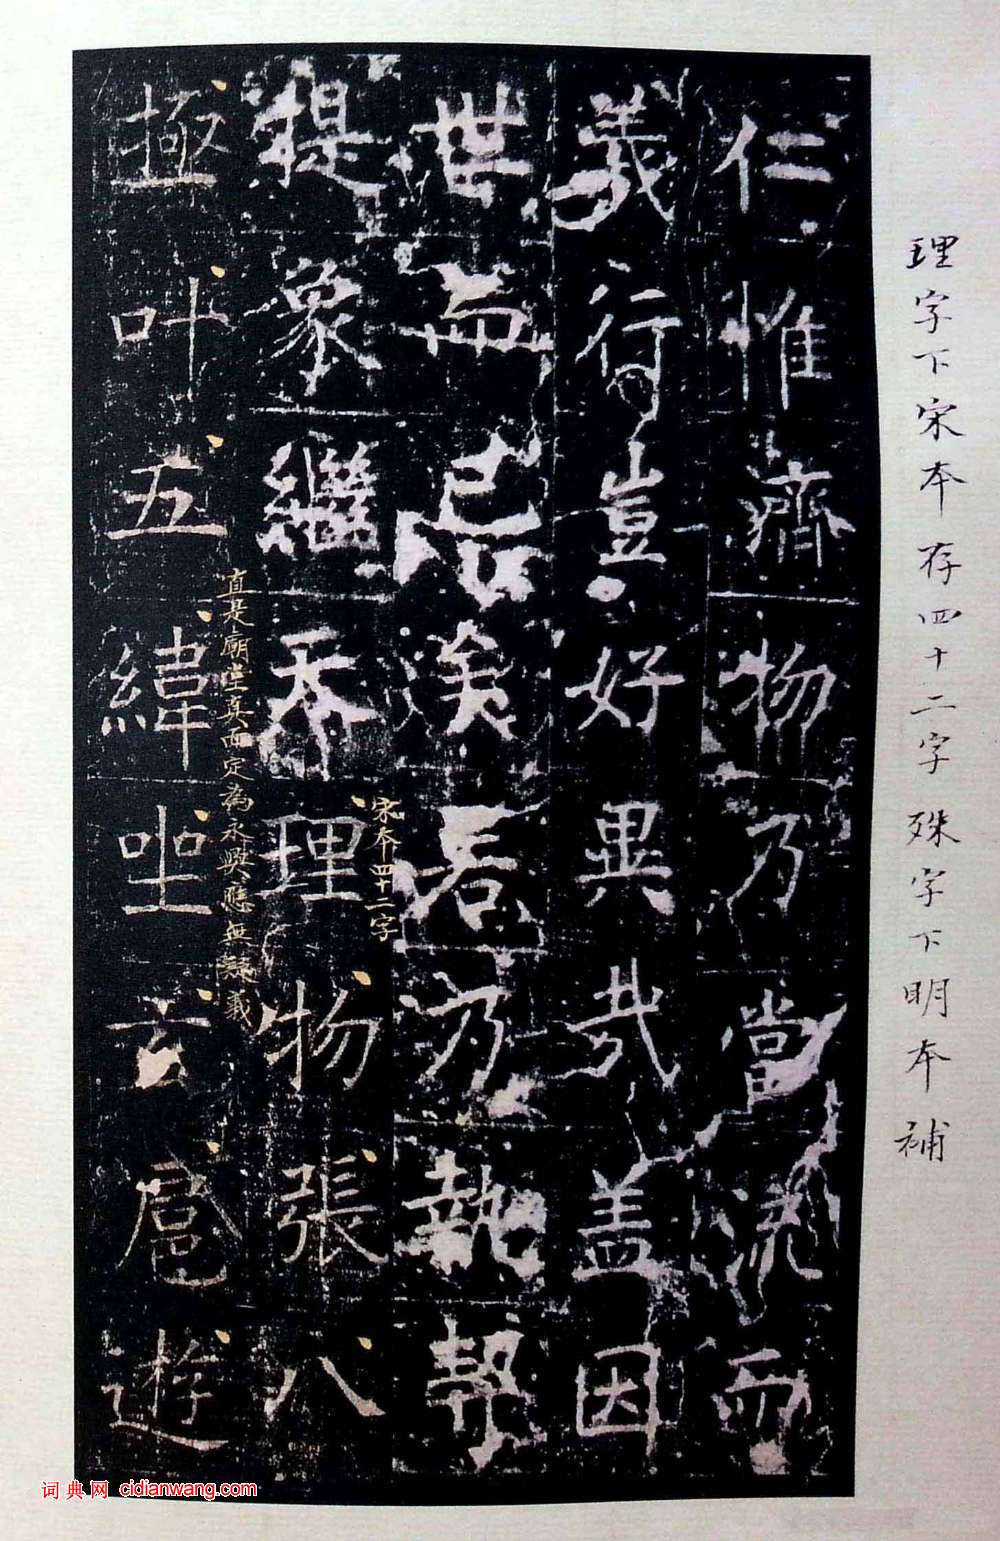 理字下宋本存四十二字殊字下明本補
仁惟濟物乃當流而
義行豈好異哉盖因
世而已矣若乃執契
提象繼天理物張八
極叶五緯坐玄扈遊
宋本四十二字
直是廟堂真面定為永興應無疑義
词典网 cidianwang.com